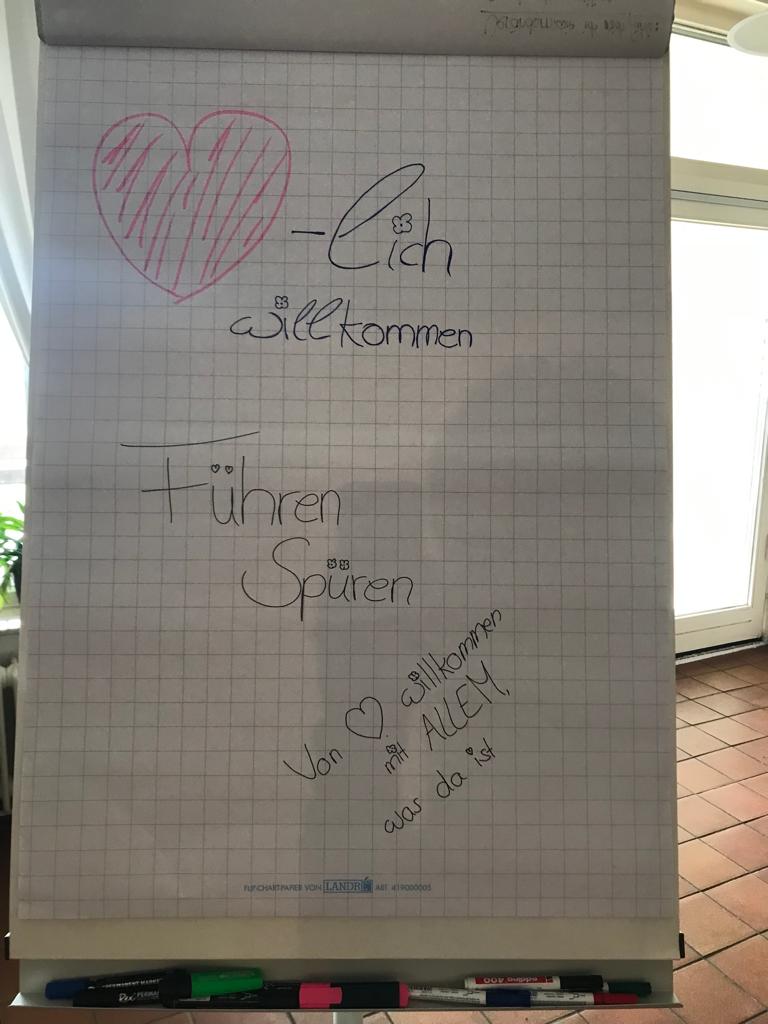 -lich
willkommen
Führen
Spüren
Von ♡ willkommen
mit ALLEM,
was da ist
FLIPCHART-PAPIER VON LANDRÉ ART. 419000005
PERMANENT MARKER
PERMA
edding 400